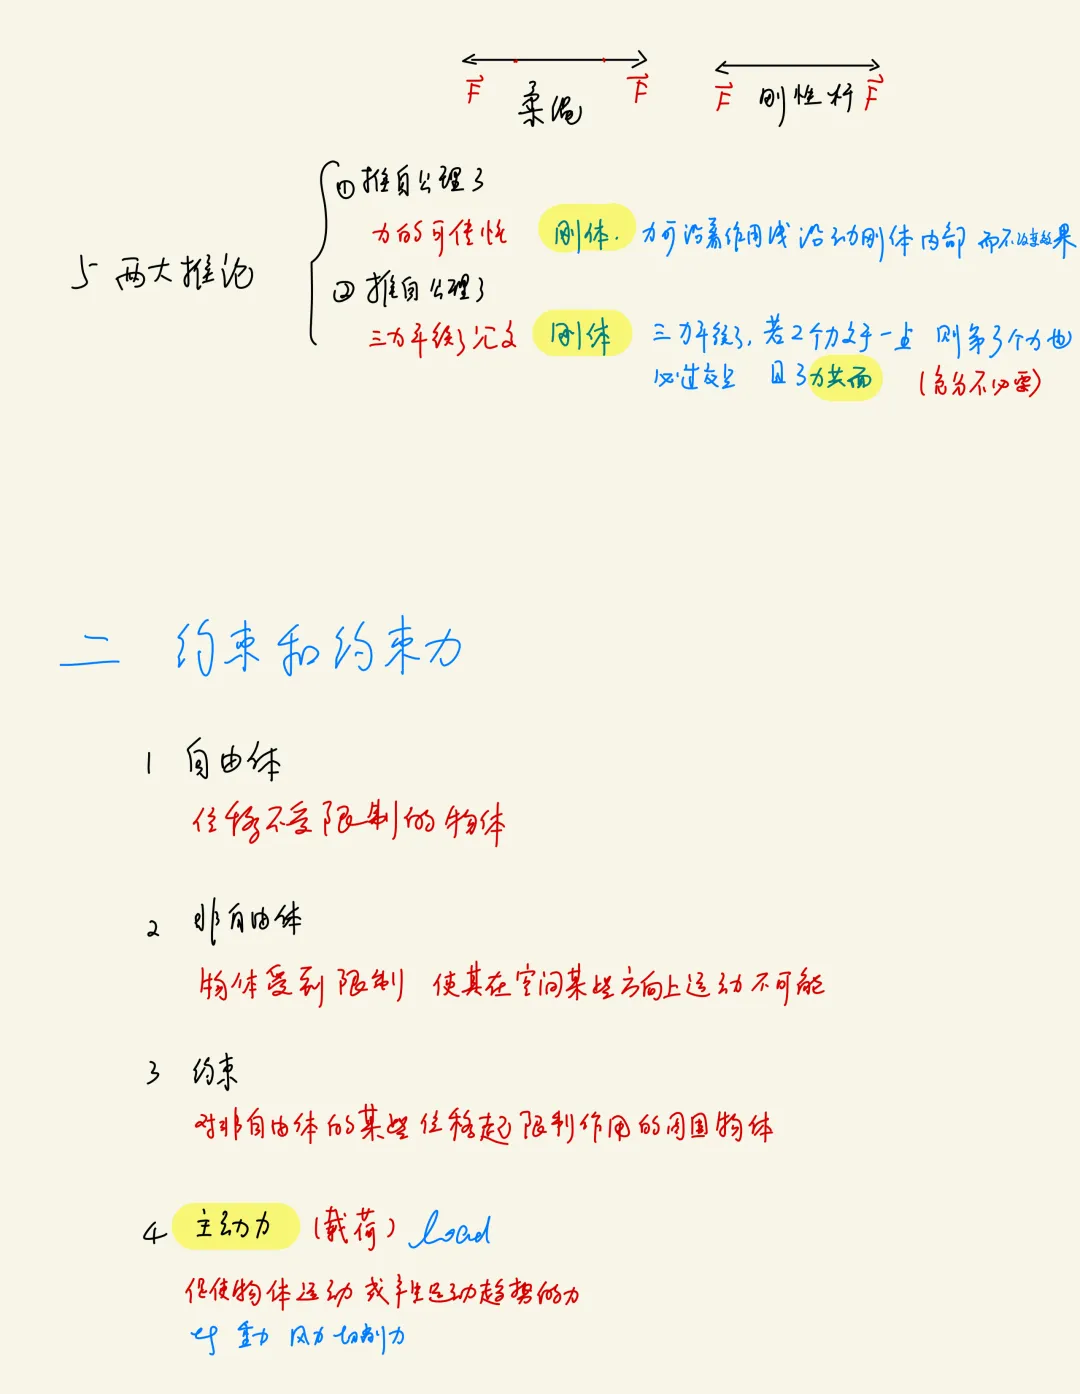 F F F F
柔绳 刚性杆
① 推自公理3
力的可传性 刚体. 力可沿着作用线沿动刚体内部而不改变效果
5 两大推论
② 推自公理3
三力平衡汇交 刚体 三力平衡, 若2个力交于一点 则第3个力也
必过交点 且3力共面 (充分不必要)
二 约束和约束力
1 自由体
位移不受限制的物体
2 非自由体
物体受到限制 使其在空间某些方向上运动不可能
3 约束
对非自由体的某些位移起限制作用的周围物体
4 主动力 (载荷) load
促使物体运动或产生运动趋势的力
重力 风力 切削力